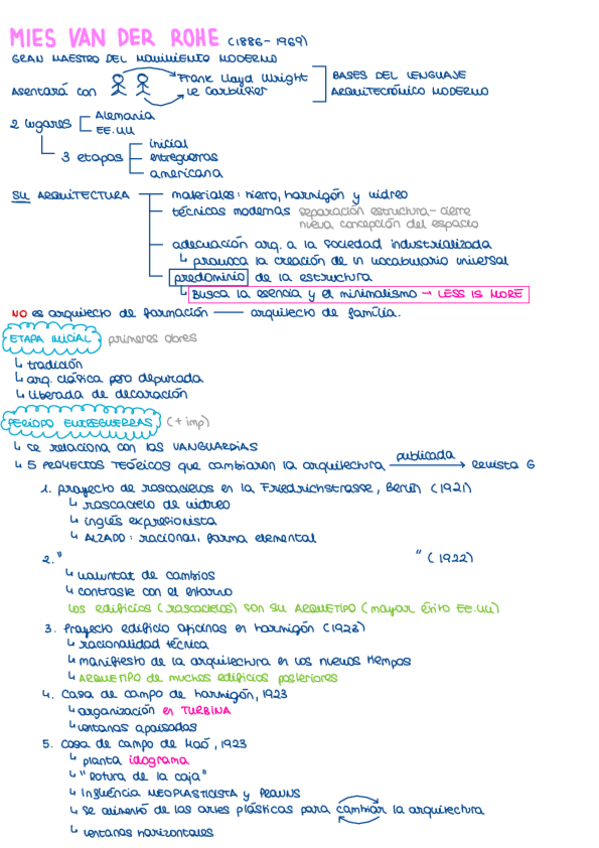 MIES VAN DER ROHE (1886-1969)
GRAN MAESTRO DEL MOVIMIENTO MODERNO
Asentará con Frank Lloyd Wright
Le Corbusier
BASES DEL LENGUAJE
ARQUITECTÓNICO MODERNO
2 lugares
Alemania
EE.UU
3 etapas
inicial
entreguerras
americana
SU ARQUITECTURA
materiales: hierro, hormigón y vidreo
técnicas modernas separación estructura-cierre
nueva concepción del espacio
adecuación arq. a la sociedad industrializada
↳ provoca la creación de un vocabulario universal
predominio de la estructura
↳ Busca la esencia y el minimalismo → LESS IS MORE
NO es arquitecto de formación — arquitecto de familia.
ETAPA INICIAL, primeras obras
↳ tradición
↳ arq. clásica pero depurada
↳ liberada de decoración
PERÍODO ENTREGUERRAS (+ imp)
↳ se relaciona con las VANGUARDIAS
↳ 5 PROYECTOS TEÓRICOS que cambiaron la arquitectura publicada → revista G
1. proyecto de rascacielos en la Friedrichstrasse, Berlín (1921)
↳ rascacielo de vidreo
↳ inglés expresionista
↳ ALZADO: racional, forma elemental
2. " " (1922)
↳ voluntat de cambios
↳ contraste con el entorno
Los edificios (rascacielos) son su ARQUETIPO (mayor éxito EE.UU)
3. Proyecto edificio oficinas en hormigón (1923)
↳ racionalidad técnica
↳ manifiesto de la arquitectura en los nuevos tiempos
↳ ARQUETIPO de muchos edificios posteriores
4. Casa de campo de hormigón, 1923
↳ organización en TURBINA
↳ ventanas apaisadas
5. Casa de campo de ladó, 1923
↳ planta idograma
↳ "Rotura de la caja"
↳ Influéncia NEOPLASTICISTA y PROUNS
↳ Se alimentó de las artes plásticas para cambiar la arquitectura
↳ ventanas horizontales